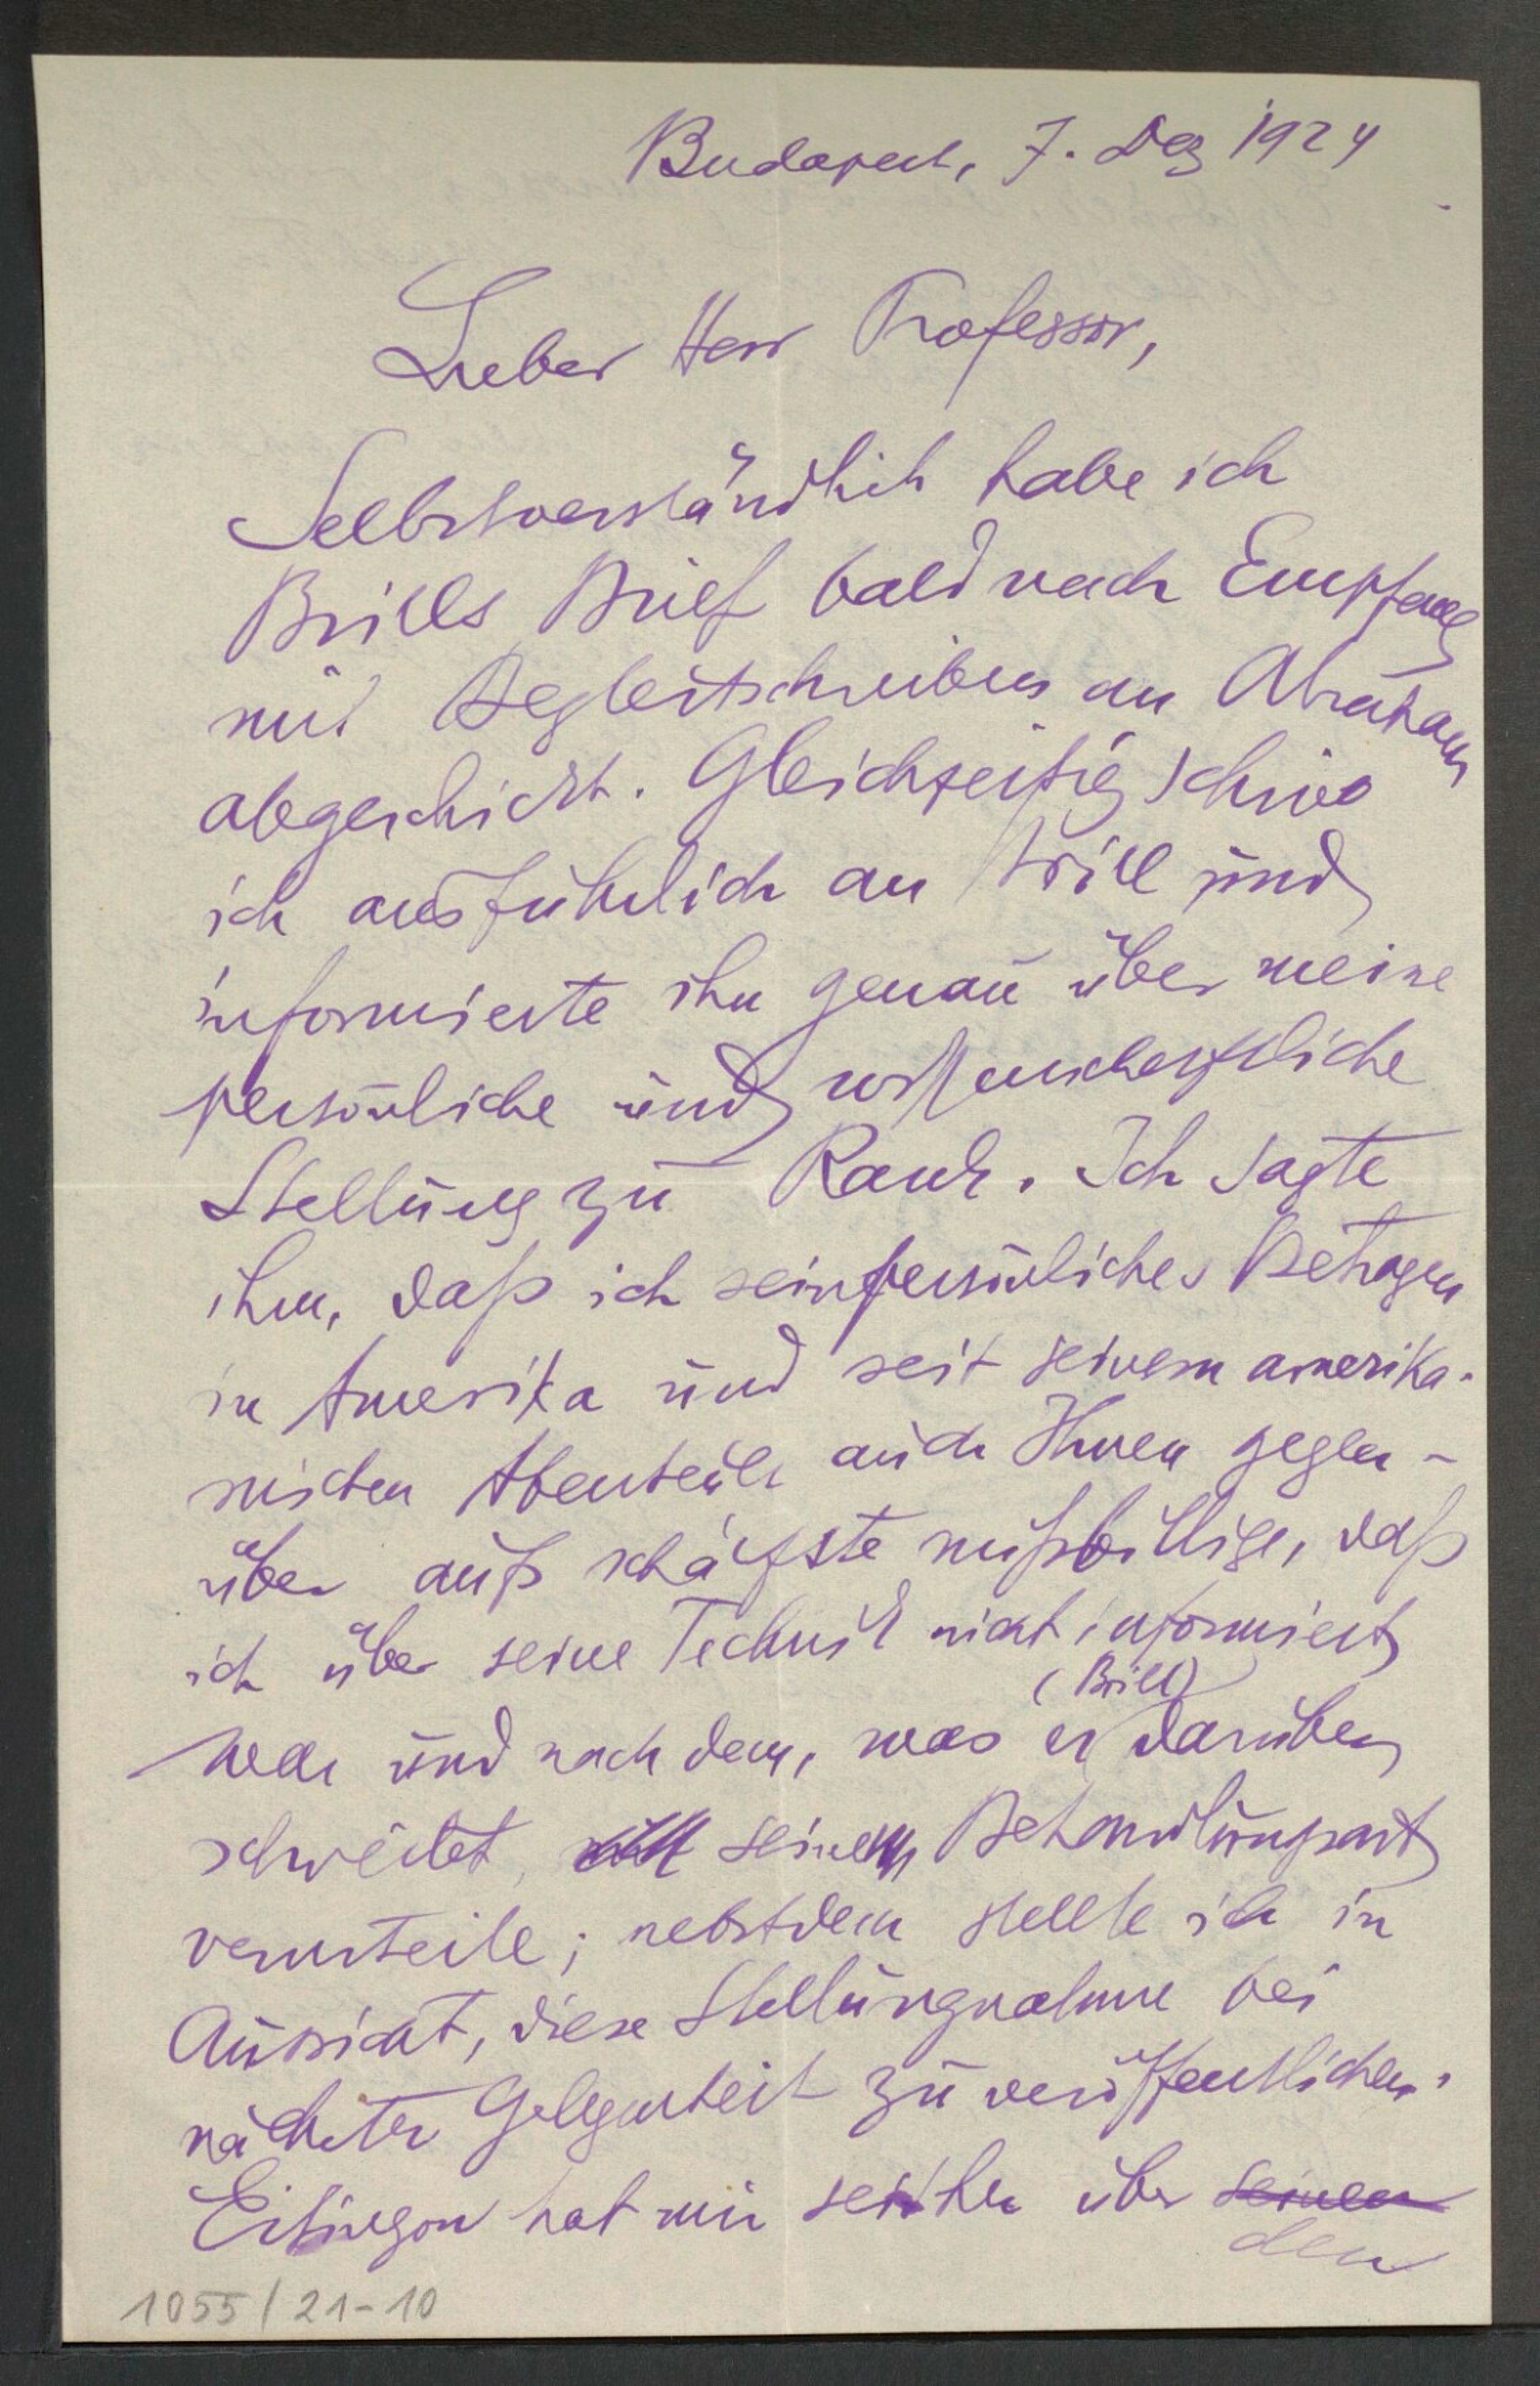 Budapest, 7. Dez 1924
Lieber Herr Professor,
Selbstverständlich habe ich
Brills Brief bald nach Empfang
mit Begleitschreiben an Abraham
abgeschickt. Gleichzeitig schrieb
ich ausführlich an Brill und
informierte ihn genau über meine
persönliche und wissenschaftliche
Stellung zu Rank. Ich sagte
ihm, daß ich sein persönliches Betragen
in Amerika und seit seinem amerika-
nischen Abenteuer auch Ihnen gegen-
über aufs schärfste mißbillige, daß
ich über seine Technik nicht informiert
(Brill)
war und nach dem, was er darüber
schreibt, seine Behandlungsart
verurteile; nebstdem stellte ich in
Aussicht, diese Stellungnahme bei
nächster Gelegenheit zu veröffentlichen.
Eitingon hat mir seither über seinen
den
1055/21-10